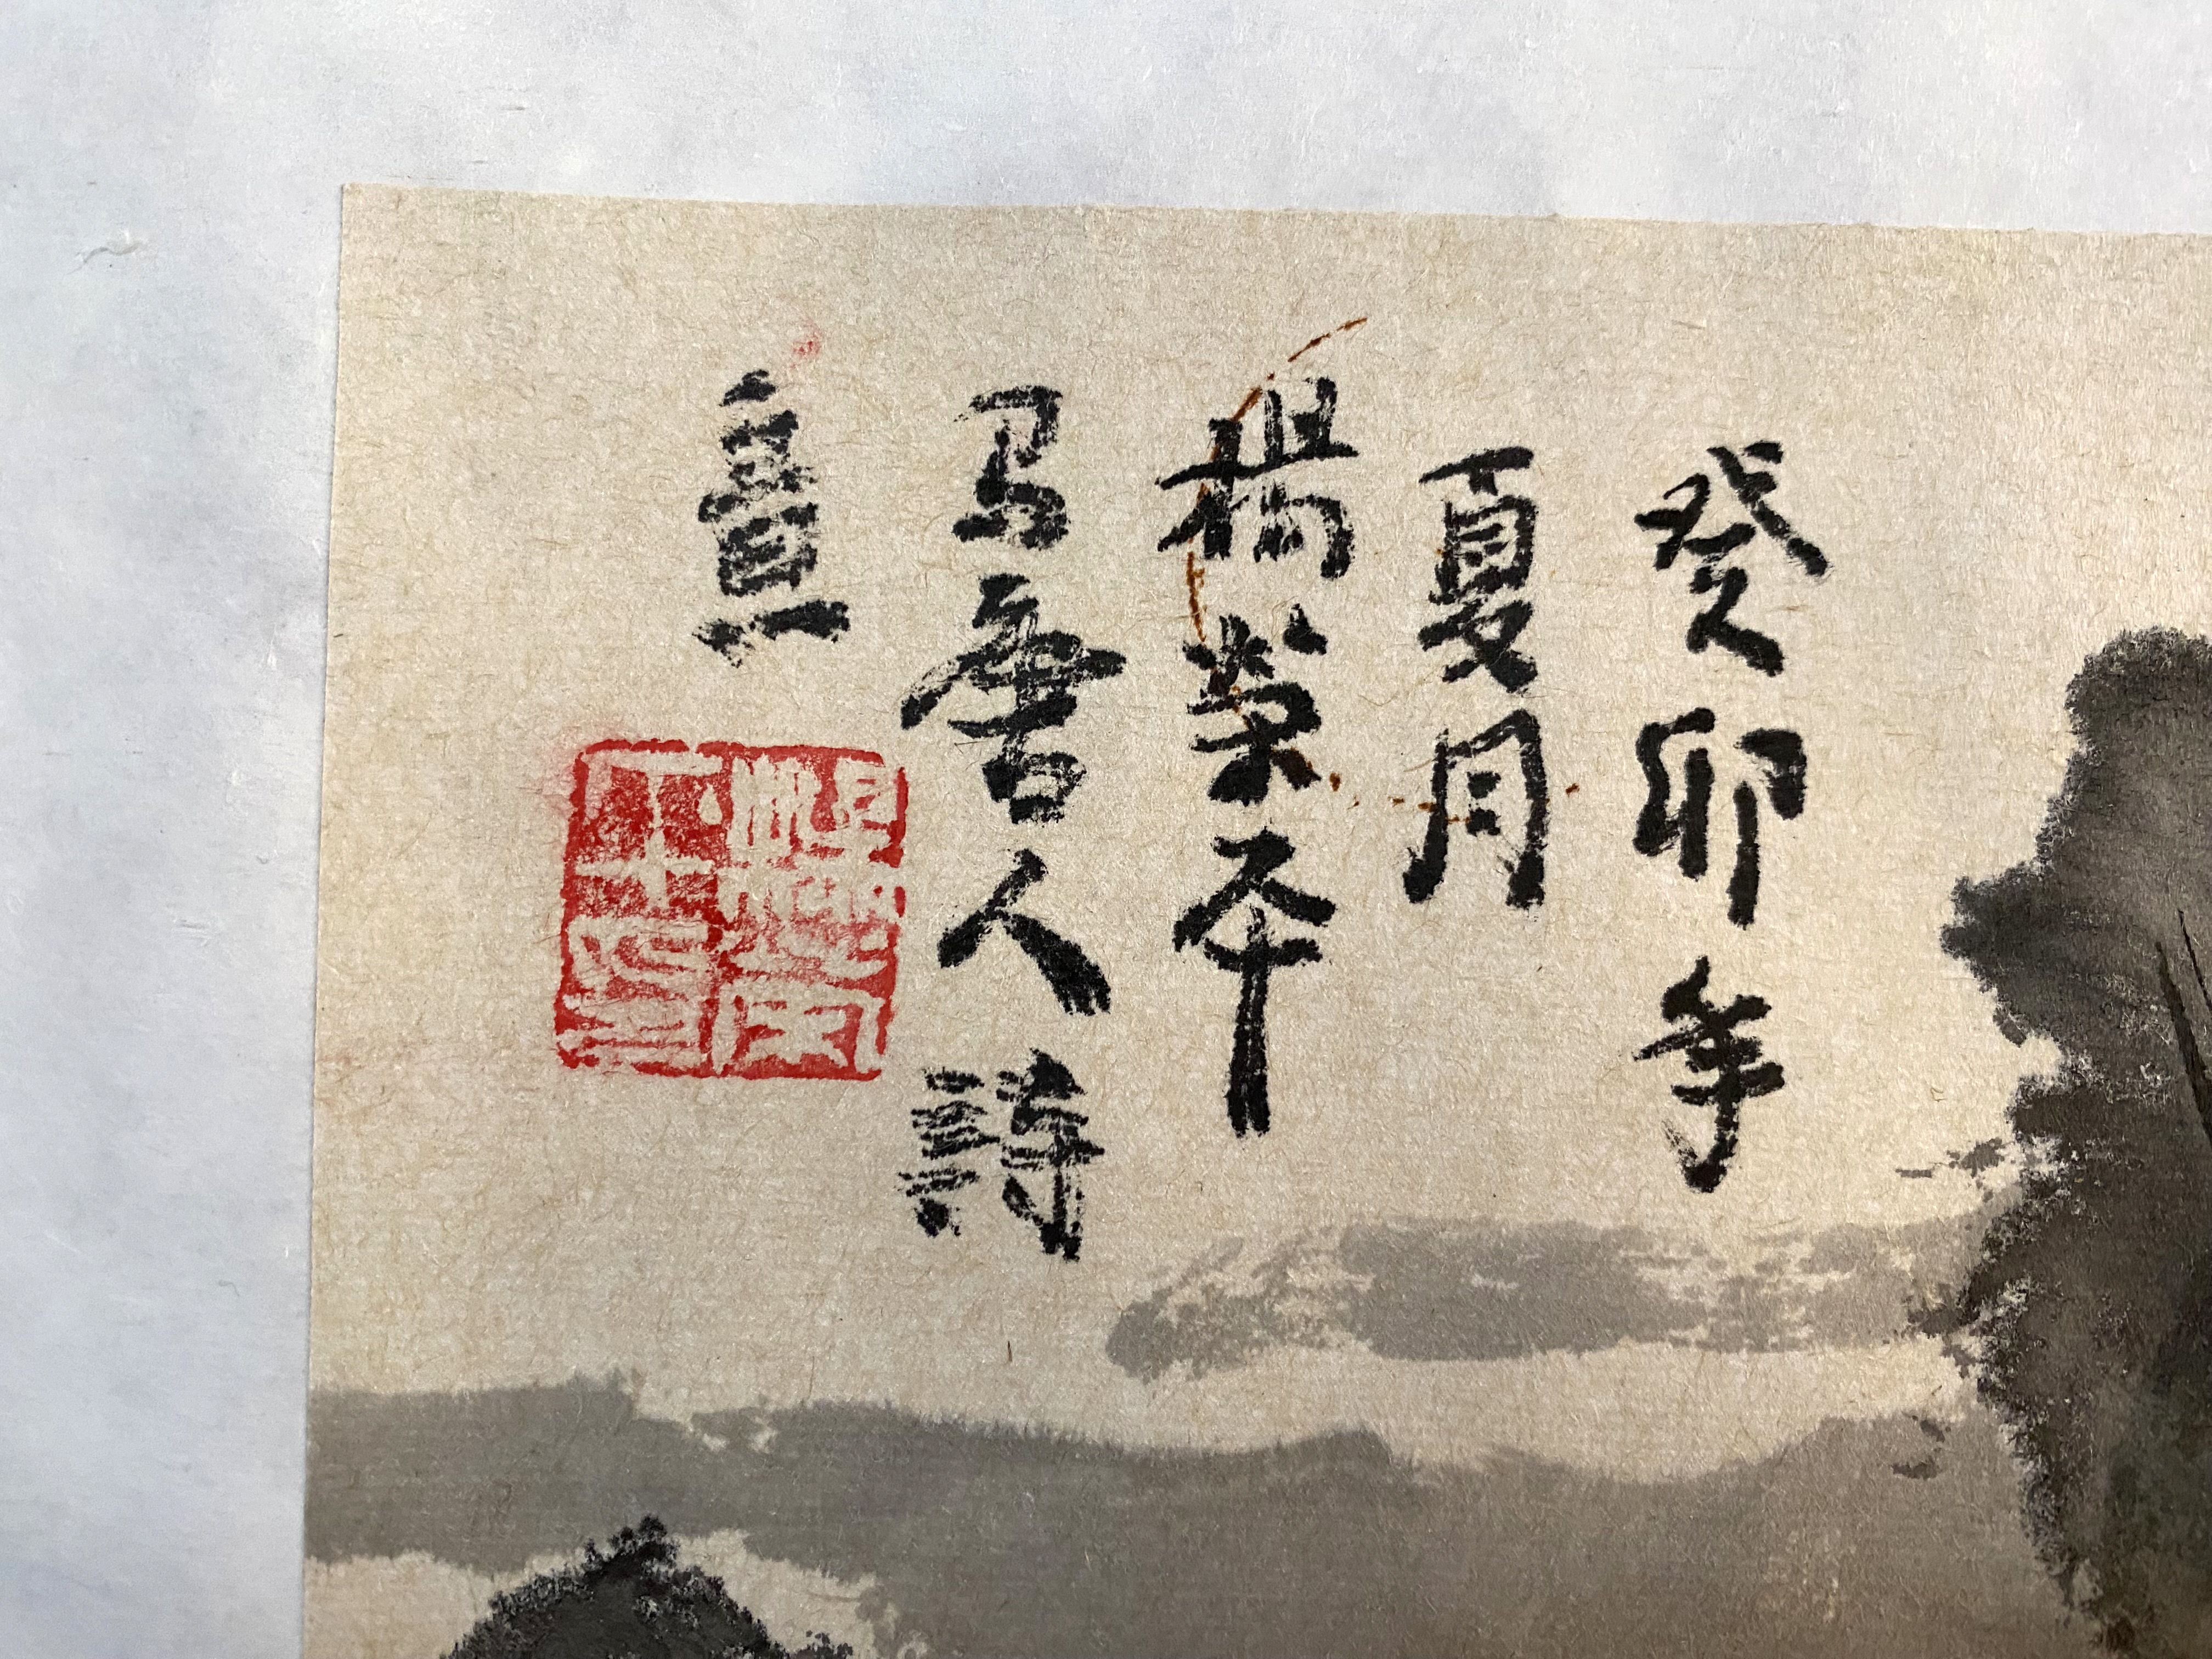 癸卯年
夏月
楊荣本
写唐人詩
意